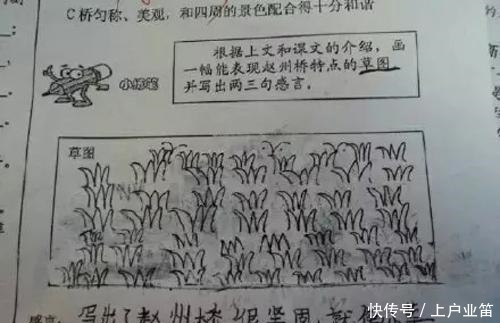 C桥匀称、美观，和四周的景色配合得十分和谐
根据上文和课文的介绍，画
一幅能表现赵州桥特点的草图
并写出两三句感言。
小练笔
草图
感言：写出了赵州桥很坚固，
快传号／上户业笛